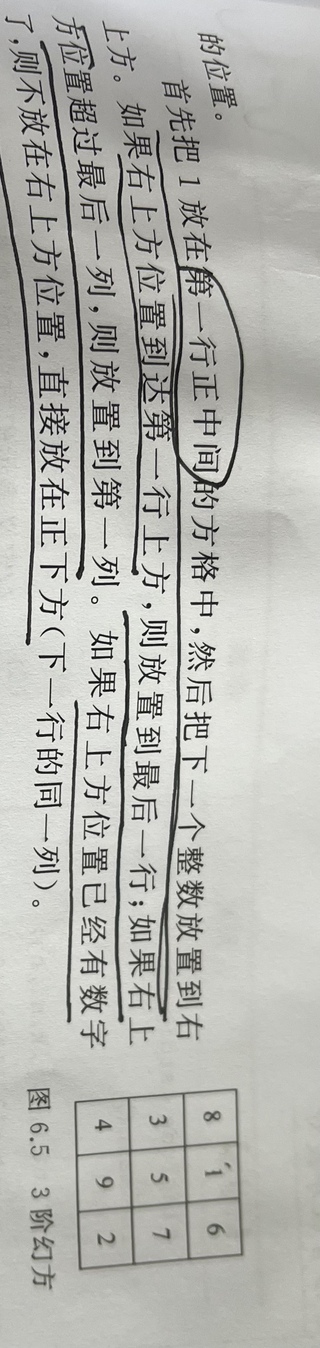 的位置。
首先把 1 放在第一行正中间的方格中,然后把下一个整数放置到右
上方。如果右上方位置到达第一行上方,则放置到最后一行;如果右上
方位置超过最后一列,则放置到第一列。如果右上方位置已经有数字
了,则不放在右上方位置,直接放在正下方(下一行的同一列)。
8 1 6
3 5 7
4 9 2
图 6.5 3 阶幻方